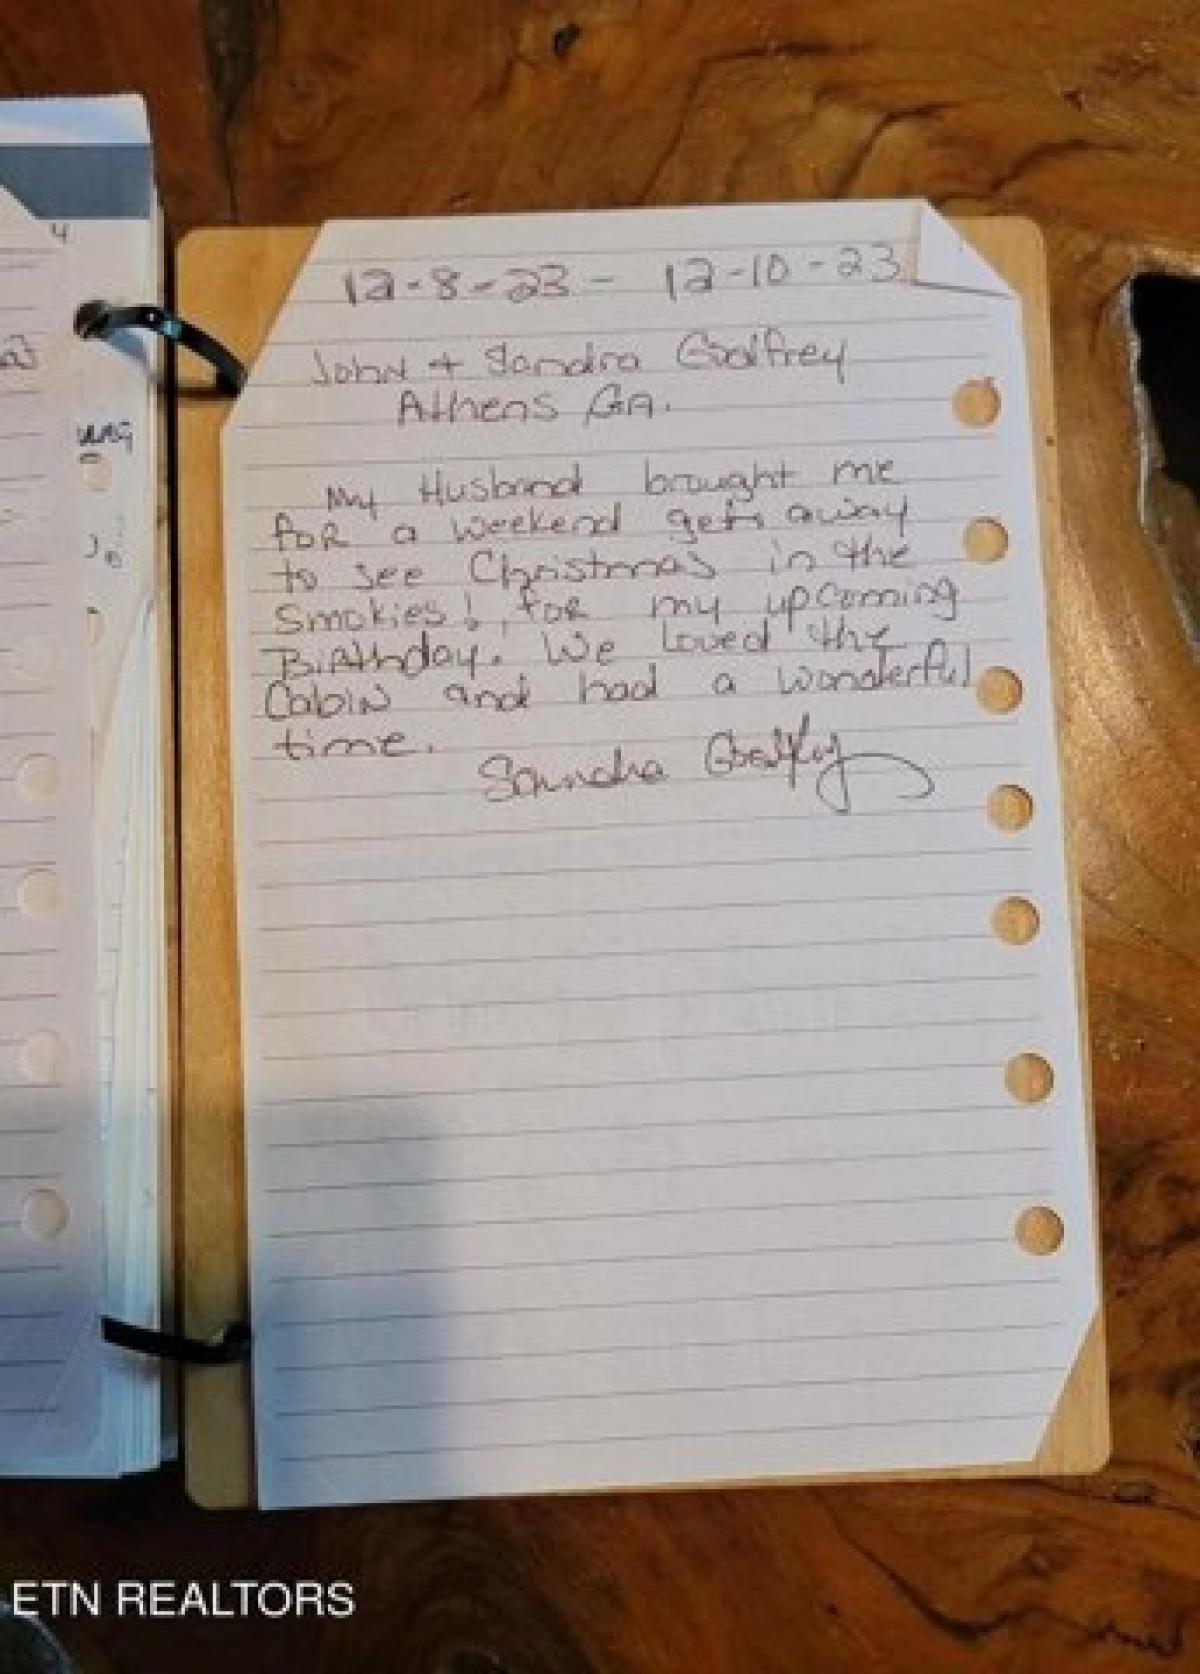 12-8-23 - 12-10-23
John + Sandra Godfrey
Athens GA.
My Husband brought me
for a weekend get away
to see Christmas in the
Smokies!, for my upcoming
Birthday. We loved the
Cabin and had a wonderful
time.
Sandra Godfrey
4
ETN REALTORS